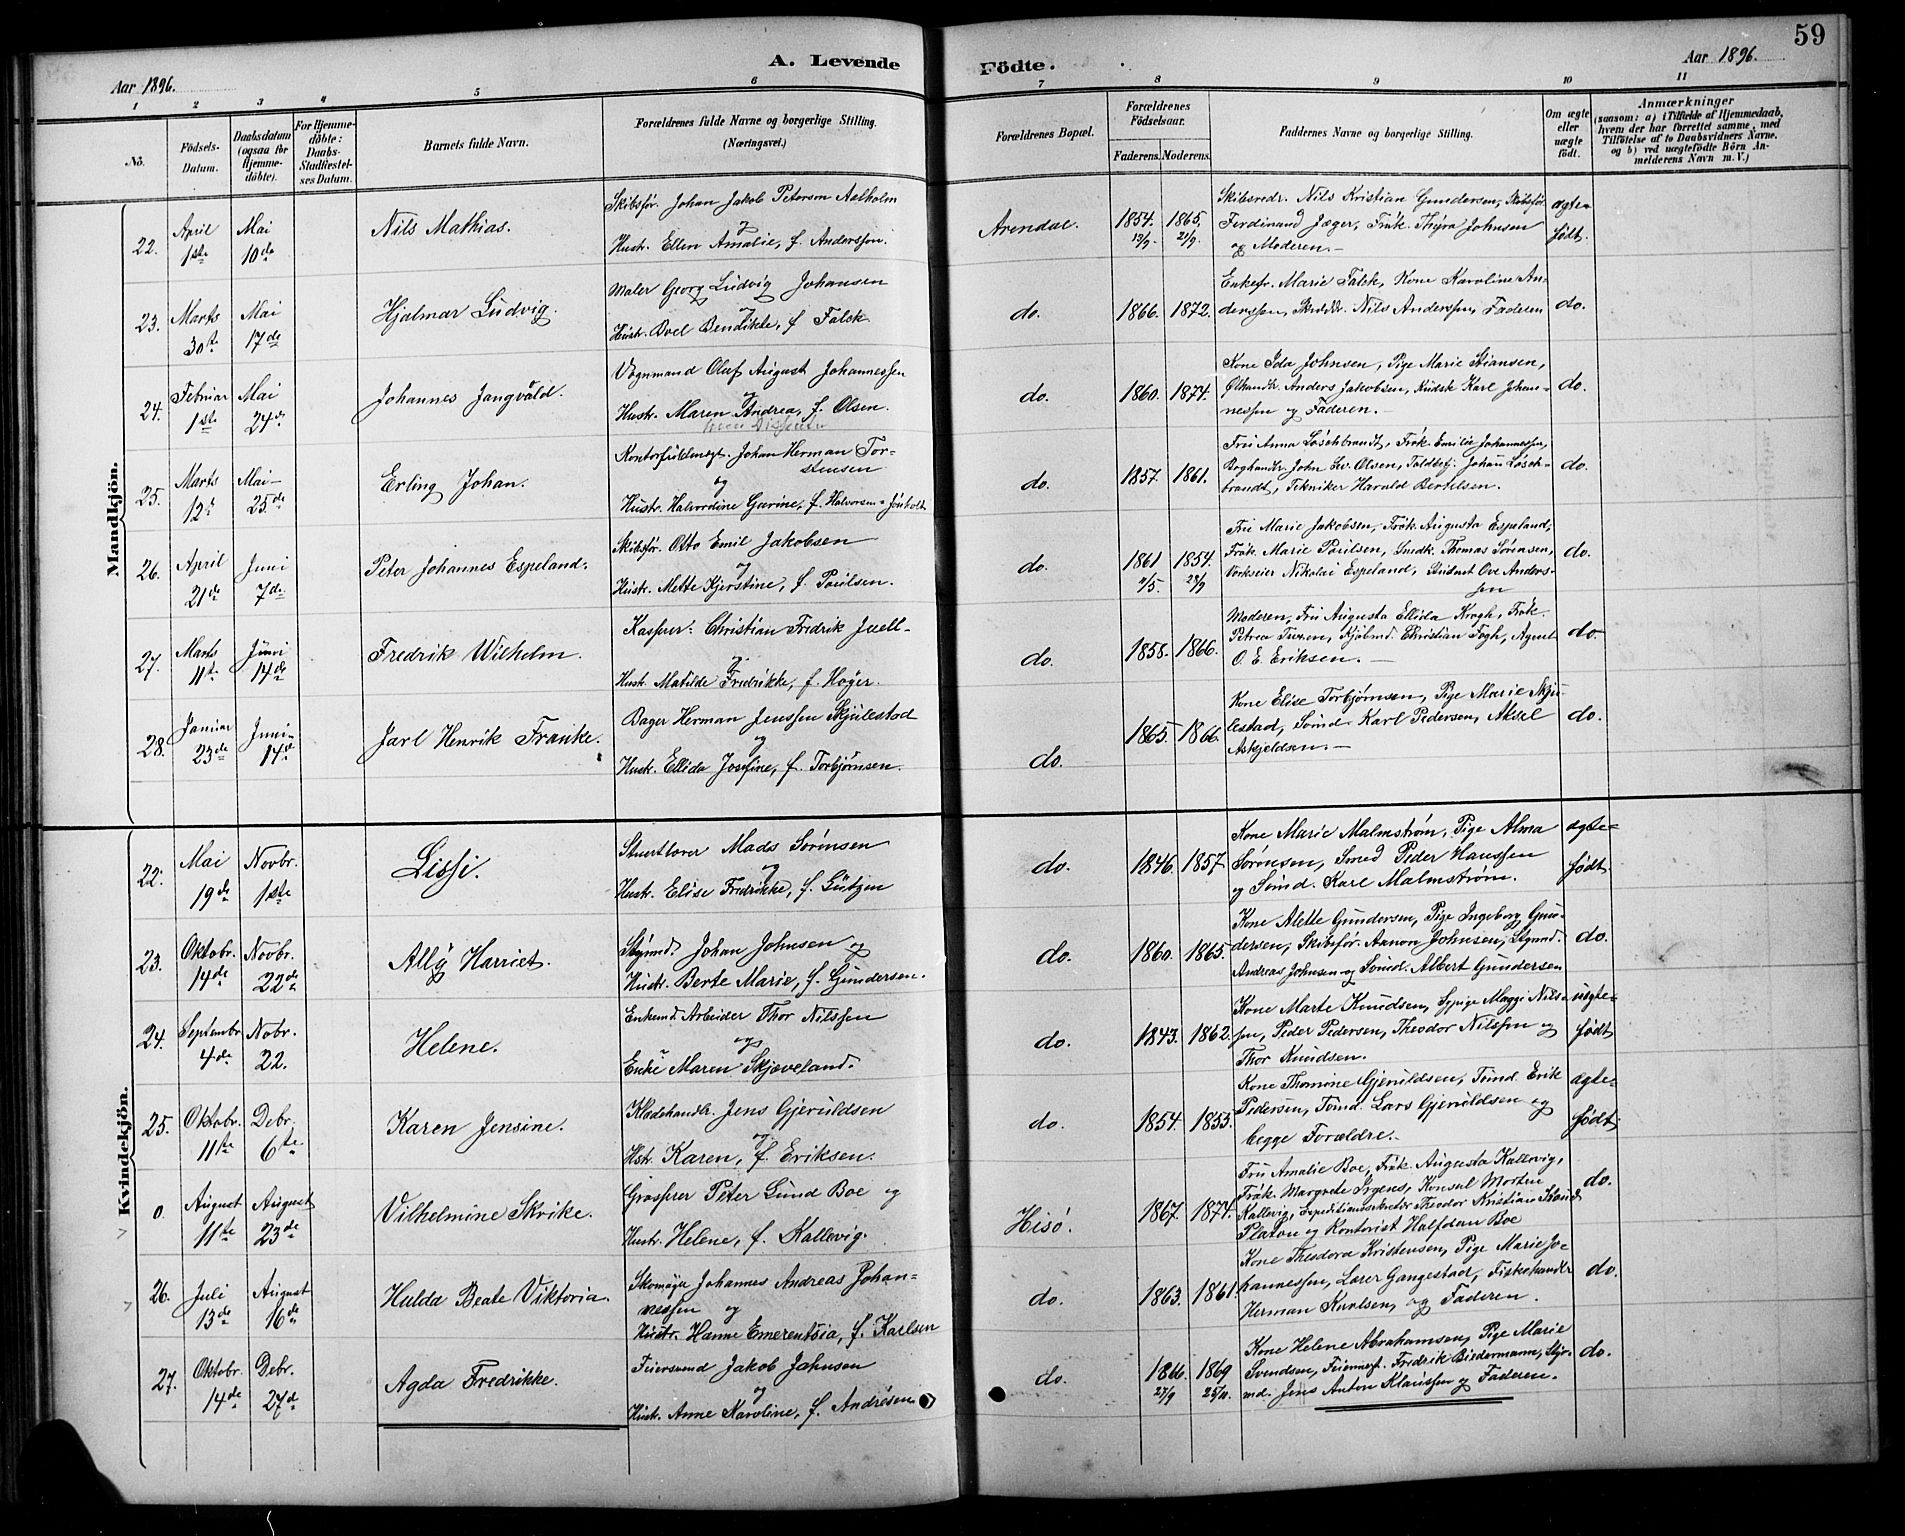 59
Aar 1896.
A. Levende
Födte.
Aar 1896.
1 2 3 4 5 6 7 8 9 10 11
No.
Födsels-
Datum.
Daabsdatum
(ogsaa for
Hjemme-
döbte).
For Hjemme-
döbte:
Daabs-
Stadfæstel-
ses Datum.
Barnets fulde Navn.
Forældrenes fulde Navne og borgerlige Stilling.
(Næringsvei.)
Forældrenes Bopæl.
Forældrenes
Födselsaar.
Faderens. Moderens.
Faddernes Navne og borgerlige Stilling.
Om ægte
eller
uægte
födt.
Anmærkninger
(saasom: a) i Tilfælde af Hjemmedaab,
hvem der har forrettet samme, med
Tilföielse af to Daabsvidners Navne.
og b) ved uægtefödte Börn An-
melderens Navn m. V.)
Mandkjön.
22.
April
1ste
Mai
10de
Nils Mathias.
Skibsfør. Johan Jakob Peterson Aalholm
og
Hustr. Ellen Amalie, f. Anderssen.
Arendal.
1854.
1865.
21/9.
Skibsredr. Nils Kristian Gundersen, Skibsfør.
Ferdinand Jæger, Frøk. Thyra Johnsen
og Moderen.-
ægte-
født.
23.
Marts
30te
Mai
17de
Hjalmar Ludvig.
Maler Georg Ludvig Johansen
og
Hustr. Boel Bendikte, f. Falck
do.
1866. 1872.
Enkefr. Marie Falck, Kone Karoline An-
derssen, Nils Anderssen, Faderen
do.
24.
Februar
1ste
Mai
24de
Johannes Jangvald.
Vognmand Olaf August Johannessen
og
Hustr. Maren Andrea, f. Olsen.
do.
1860. 1874.
Kone Ida Johnsen, Pige Marie Stiansen,
Anders Jakobsen, Kudsk Karl Johan-
nessen og Faderen.-
do.
25.
Marts
12te
Mai-
25de
Erling Johan.
Kontorfuldmægt. Johan Herman Tor-
stensen
og
Hustr. Halvordine Gurine, f. Halvorsen-
do.
1857. 1861.
Fru Anna Løschbrandt, Frøk. Emilie Johannessen,
Boghandlr. John Sv. Olsen, Toldbetj. Johan Løsch-
brandt, Tekniker Harald Bertelsen.
do.
26.
April
21de
Juni
7de
Peter Johannes Espeland.
Skibsfør. Otto Emil Jakobsen
og
Hustr. Mette Kjerstine, f. Poulsen.
do.
1861
1854.
Fru Marie Jakobsen, Frøk. Augusta Espeland,
Frøk. Marie Poulsen, Snedk. Thomas Sørensen,
Værkseier Nikolai Espeland, Student Ove Anders-
sen
do.
27.
Marts
11te
Juni
14de
Fredrik Wilhelm.
Kasserer. Christian Fredrik Juell-
og
Hustr. Matilde Fredrikke, f. Høyer.
do.
1858. 1866.
Moderen, Fru Augusta Ellida Krogh, Frøk.
Petrea Kjøbmd. Christian Fogh, Agent
O. E. Eriksen.-
do
28.
Januar
23de
Juni-
14de
Jarl Henrik Franke.
Bager Herman Jenssen Skjulestad
og
Hustr. Ellida Josefine, f. Torbjørnsen.
do.
1865. 1866.
Kone Elise Torbjørnsen, Pige Marie Skju-
lestad, Sømd. Karl Pedersen, Aksel
Askjeldsen.-
do.
Kvindekjön.
22.
Mai
19de
Novbr.
1ste
Lissi.
Stuertlover Mads Sørensen
og
Hustr. Elise Fredrikke, f. Gutzen
do.
1846. 1857.
Kone Marie Malmstrøm, Pige Alma
Sørensen, Smed Peder Hanssen
og Sømd. Karl Malmstrøm.
ægte-
født.
23.
Oktobr.
14de
Novbr.
22de
Ally Harriet.
Stymd. Johan Johnsen og
Hustr. Berte Marie, f. Gundersen.
do.
1860. 1865.
Kone Alette Gundersen, Pige Ingeborg Gun-
dersen, Skibsfør. Aanon Johnsen, Stymd.
Andreas Johnsen og Sømd. Albert Gundersen
do.
24.
Septembr.
4de
Nobr.
22.
Helene.
Enkemd. Arbeider Thor Nilssen
og
Enke Maren Skjæveland.
do.
1843. 1862.
Kone Marte Knudsen, Sypige Maggi Nils-
sen, Peder Pedersen, Theodor Nilssen og
Thor Knudsen.
uægte-
født
25.
Oktobr.
11te
Debr.
6te
Karen Jensine.
Klædehandlr. Jens Gjeruldsen
og
Hstr. Karen, f. Eriksen.
do.
1854. 1855.
Kone Thomine Gjeruldsen, Tømd. Erik
Pedersen, Tømd. Lars Gjeruldsen og
begge Forældre.-
ægte-
født
0.
August
11te
August
23de
Vilhelmine Skrike.
Grosserer Peter Lund Boe og
Hustr. Helene, f. Kallevig.
Hisö.
1867. 1874.
Fru Amalie Boe, Frøk. Augusta Kallevig,
Frøk. Margrete Konsul Morten
Kallevig, Expeditionssekretær Theodor Kristian
Platou og Kontorist Halfdan Boe
do.
26.
Juli
13de
August
16de
Hulda Beate Viktoria.
Skomager Johannes Andreas Johan-
nessen og
Hustr. Hanne Emerentsia, f. Karlsen
do.
1863. 1861.
Kone Theodora Kristensen, Pige Marie Jo-
hannessen, Lærer Gangestad, Fiskehandler
Herman Karlsen, og Faderen.
do.
27.
Oktobr.
14de
Debr.
27de
Agda Fredrikke.
Feiersvend Jakob Johnsen
og
Hustr. Anne Karoline, f. Andresen.
do.
1866
27/9
1869
Kone Helene Abrahamsen, Pige Marie
Svendsen, Feiermest. Fredrik Biedermann, Styr-
md. Jens Anton Klaussen og Faderen.
do.